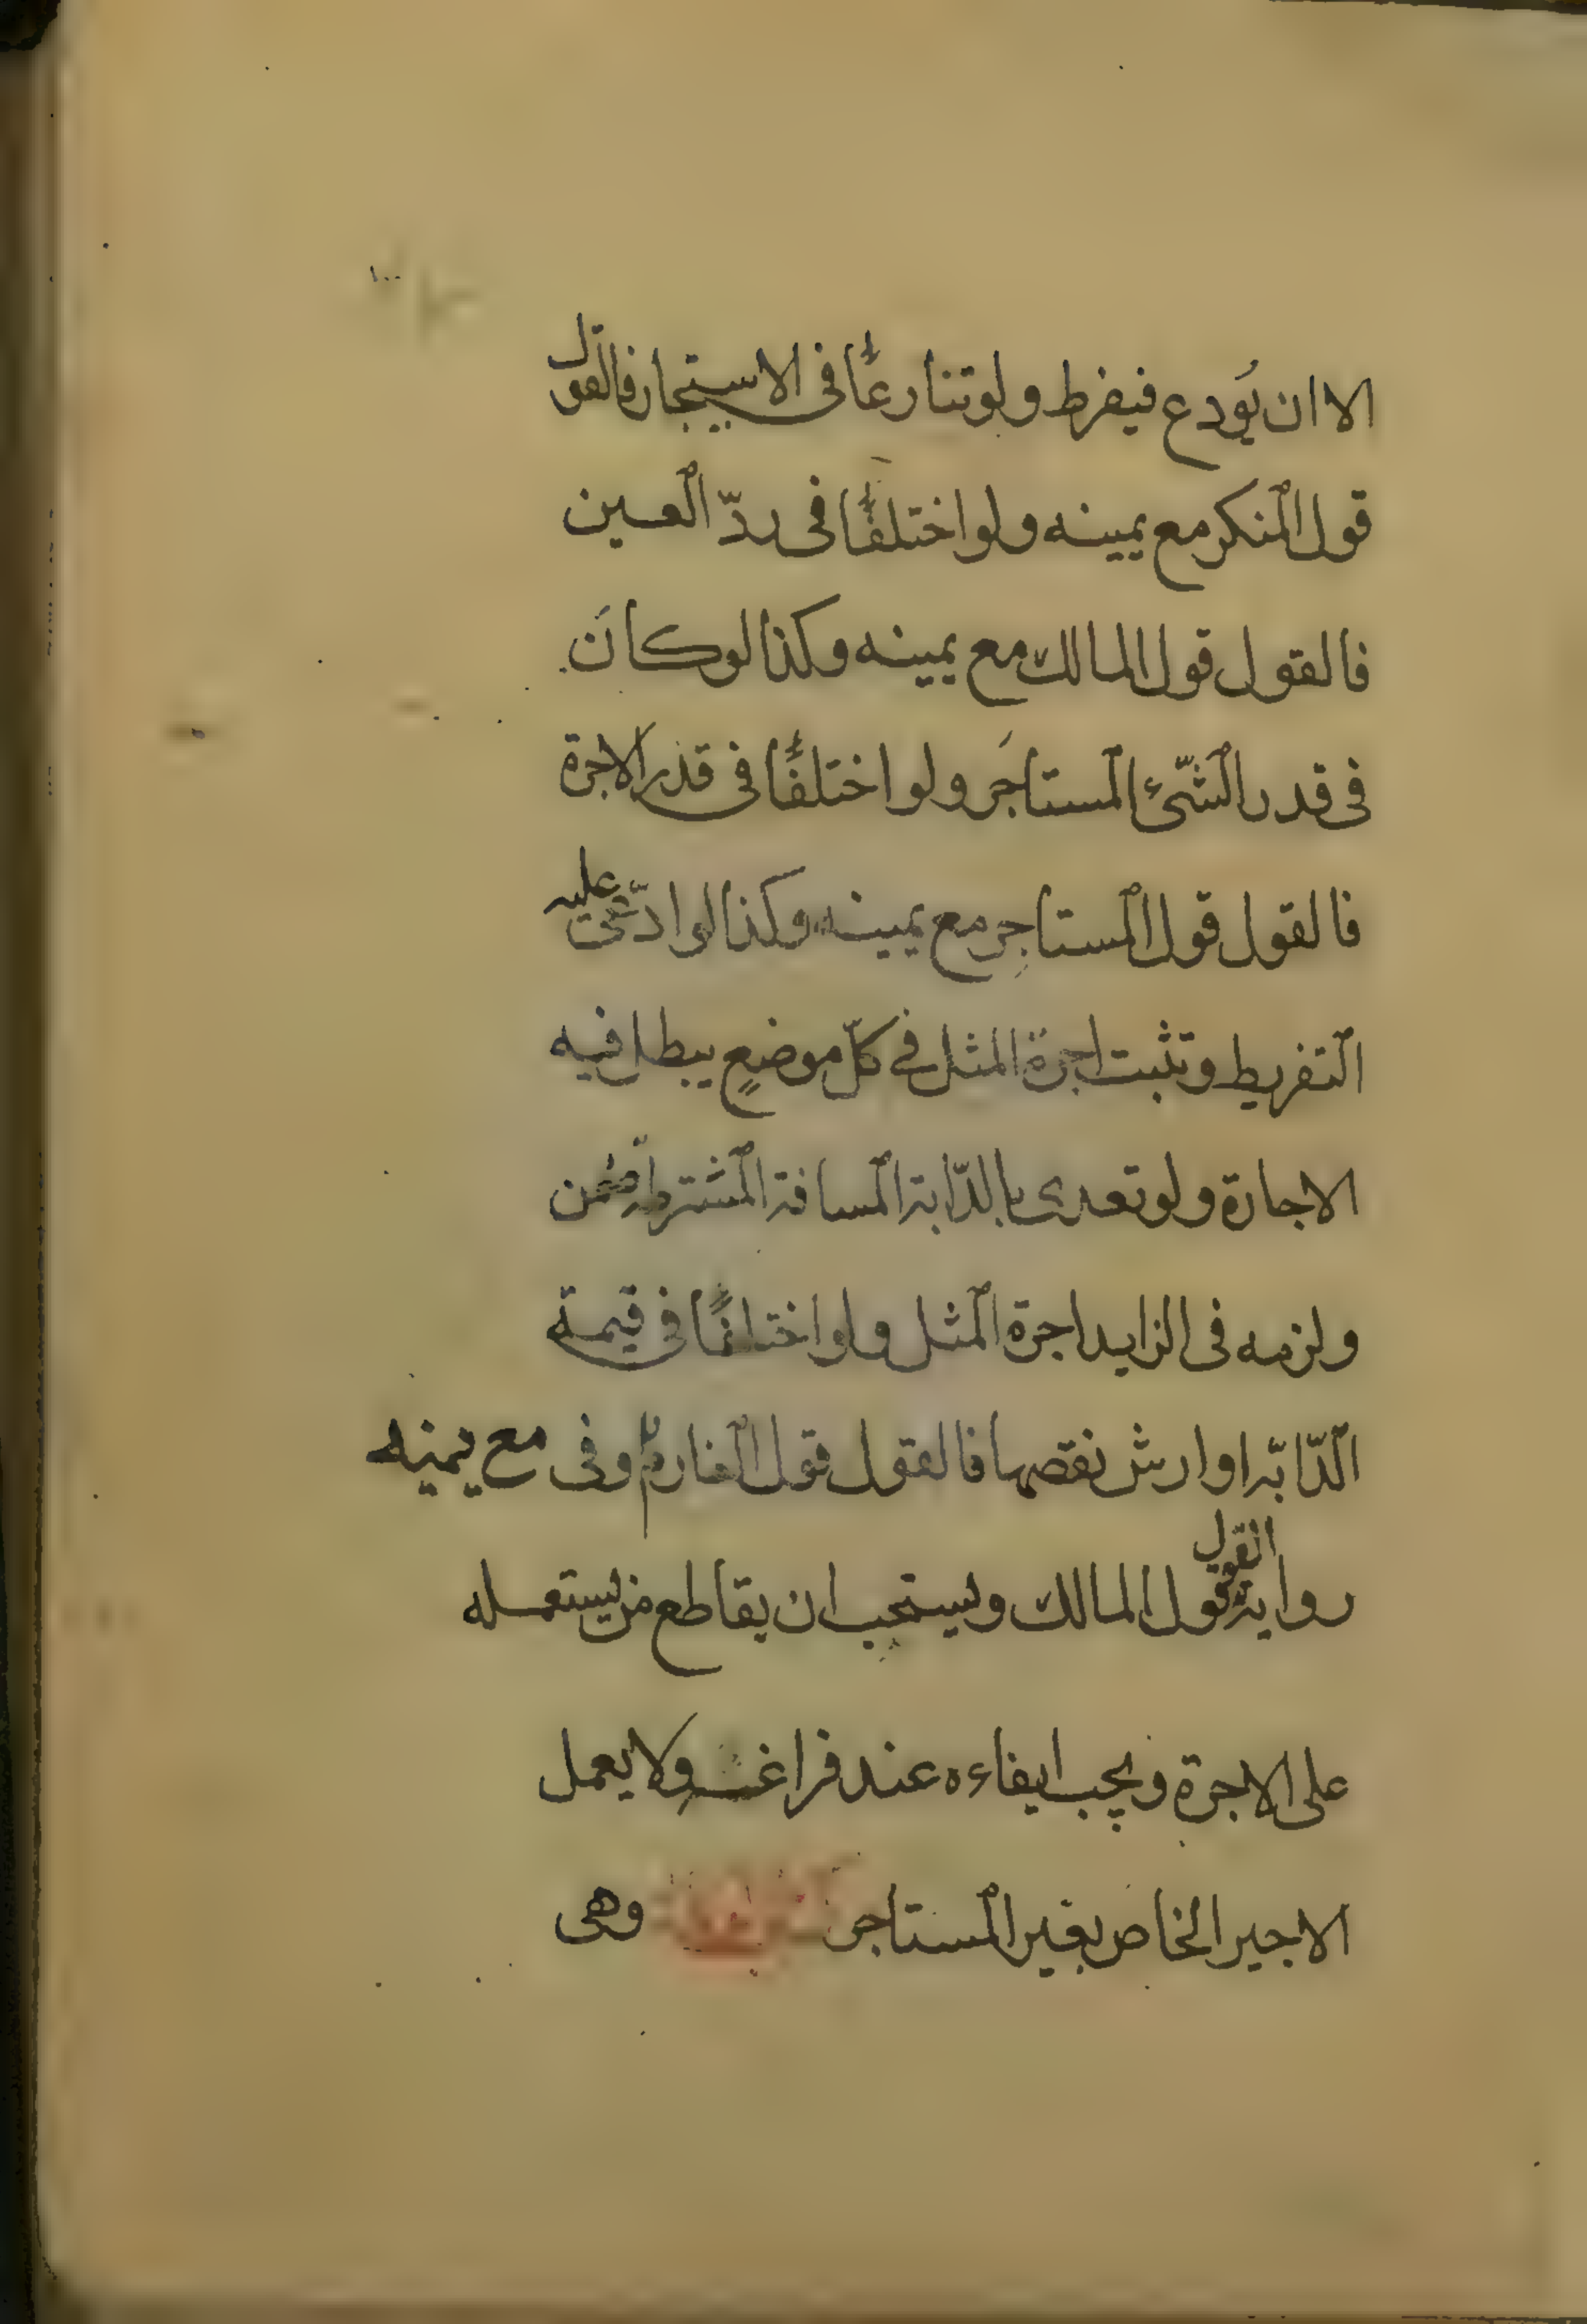 الا ان يودع فيفرط ولو تنازعا فى الاستيجار فالقول
قول المنكر مع يمينه ولو اختلفا فى ردّ العين
فالقول قول المالك مع يمينه وكذا لو كان
فى قدر الشّىء المستاجَر ولو اختلفا فى قدر الاجرة
فالقول قول المستاجر مع يمينه وكذا لو ادّعى عليه
التفريط وتثبت اجرة المثل فى كلّ موضعٍ يبطل فيه
الاجارة ولو تعدى بالدّابة المسافة المشترطة ضمن
ولزمه فى الزايد اجرة المثل ولو اختلفا فى قيمة
الدّابّة او ارش نقصها فالقول قول الغارم وفى مع يمينه
رواية القول قول المالك ويستحب ان يقاطع من يستعمله
على الاجرة ويجب ايفاءه عند فراغه ولا يعمل
الاجير الخاص بغير المستاجر وهى